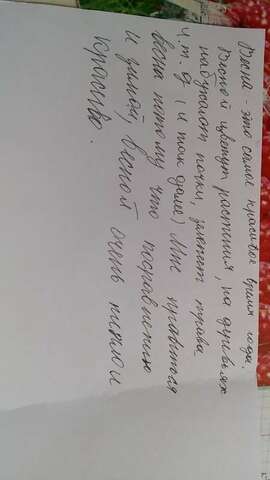 Весна - это самое красивое время года.
Весной цветут растения, на деревьях
набухают почки, зелнеет трава
и.т.д. (и так далее) Мне нравиться
весна потому что посравнению
и зимой, весной очень тепло и
красиво.